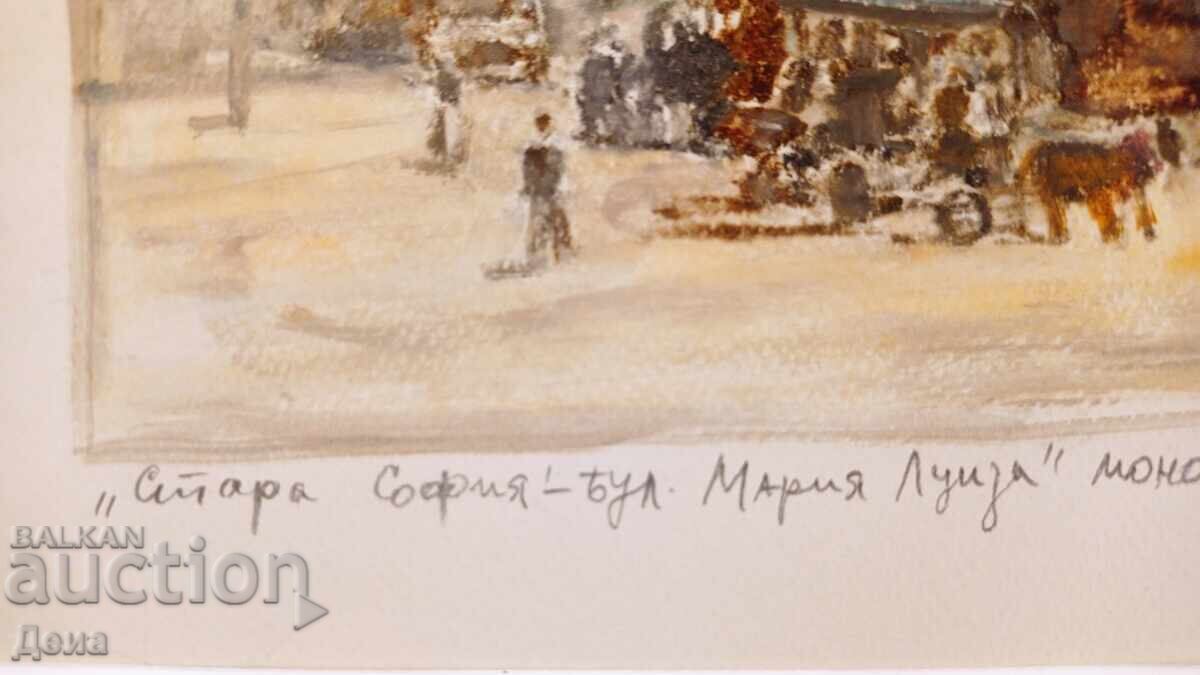 „Стара София“ – бул. Мария Луиза" моно
BALKAN
auction
Деиа